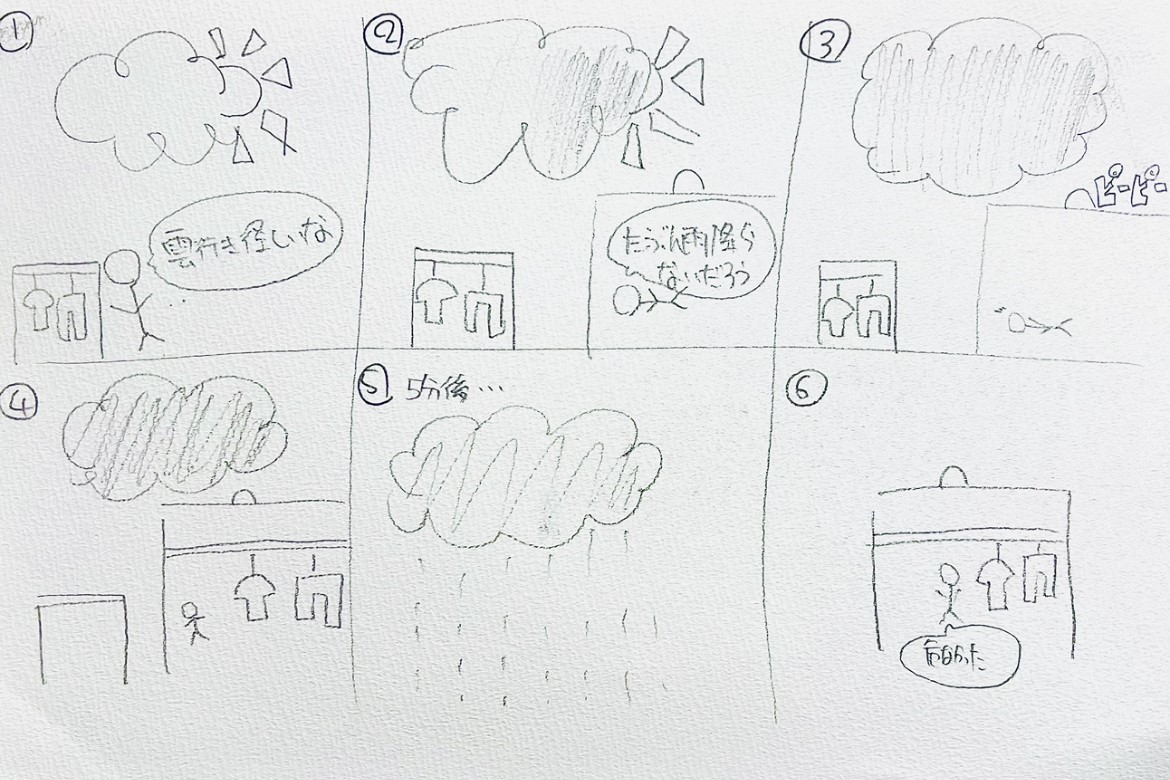 ①
雲行き怪しいな
②
たぶん雨降ら
ないだろう
③
ピーピー
④
⑤ 5分後…
⑥
危なかった